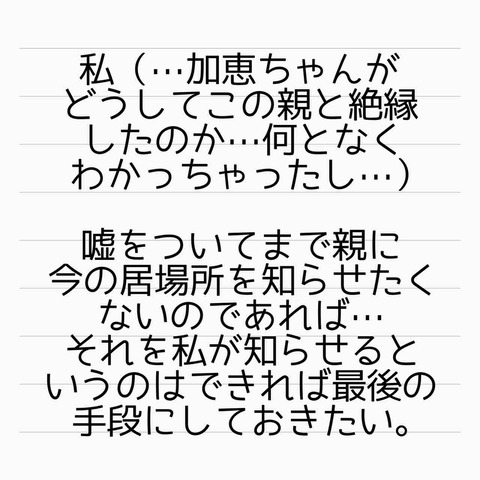 私（…加恵ちゃんが
どうしてこの親と絶縁
したのか…何となく
わかっちゃったし…）
嘘をついてまで親に
今の居場所を知らせたく
ないのであれば…
それを私が知らせると
いうのはできれば最後の
手段にしておきたい。